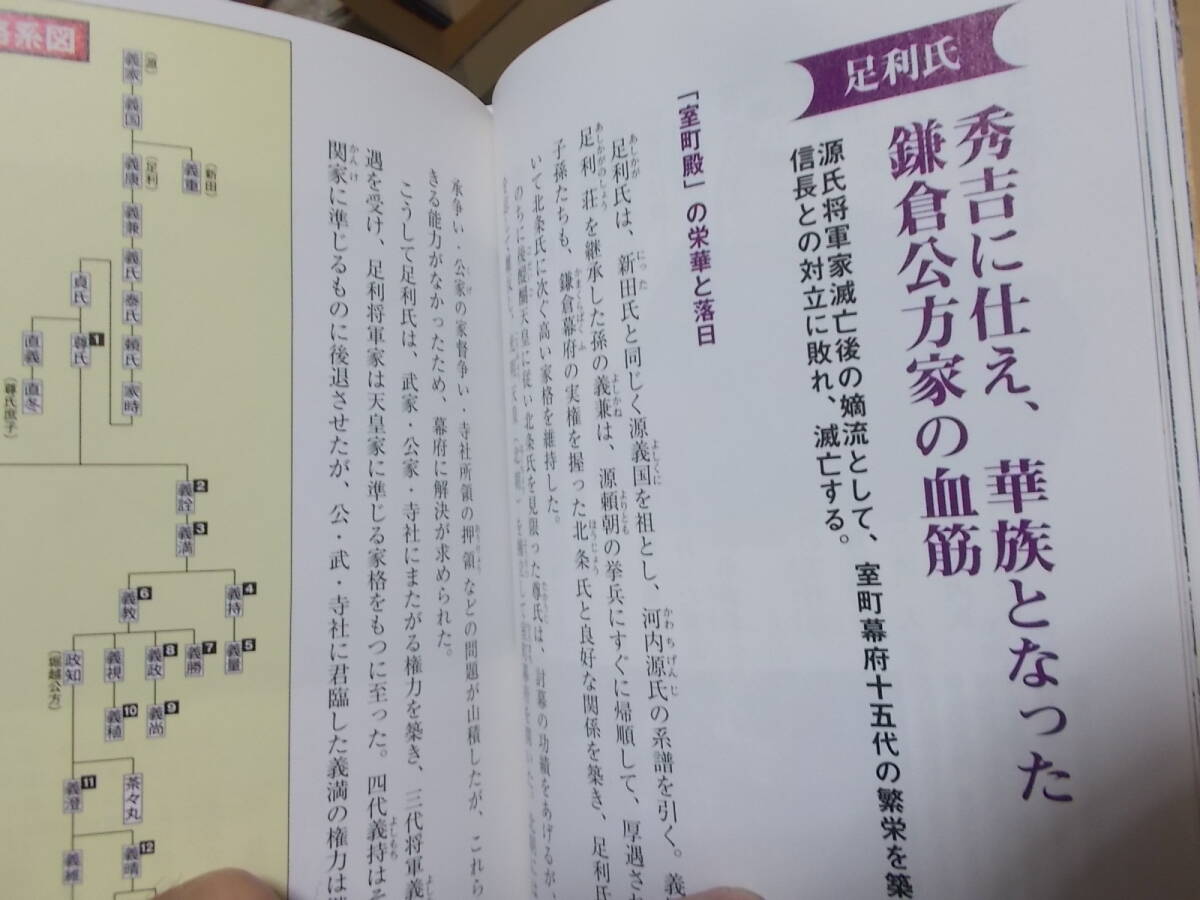 足利氏
秀吉に仕え、華族となった
鎌倉公方家の血筋
源氏将軍家滅亡後の嫡流として、室町幕府十五代の繁栄を築
信長との対立に敗れ、滅亡する。
「室町殿」の栄華と落日
足利氏は、新田氏と同じく源義国を祖とし、河内源氏の系譜を引く。義
足利荘を継承した孫の義兼は、源頼朝の挙兵にすぐに帰順して、厚遇され
子孫たちも、鎌倉幕府の実権を握った北条氏と良好な関係を築き、足利氏
いて北条氏に次ぐ高い家格を維持した。
のちに後醍醐天皇に従い北条氏を見限った尊氏は、討幕の功績をあげるが、
承争い・公家の家督争い・寺社所領の押領などの問題が山積したが、これら
きる能力がなかったため、幕府に解決が求められた。
こうして足利氏は、武家・公家・寺社にまたがる権力を築き、三代将軍義
遇を受け、足利将軍家は天皇家に準じる家格をもつに至った。四代義持はそ
関家に準じるものに後退させたが、公・武・寺社に君臨した義満の権力は
図系
(源)
義家
義国
(新田)
義重
(足利)
義康
義兼
義氏
泰氏
頼氏
家時
貞氏
1
尊氏
直義
直冬
(尊氏庶子)
2
義詮
3
義満
4
義持
5
義量
6
義教
7
義勝
8
義政
9
義尚
義視
10
義稙
政知
(堀越公方)
茶々丸
11
義澄
12
義晴
義維